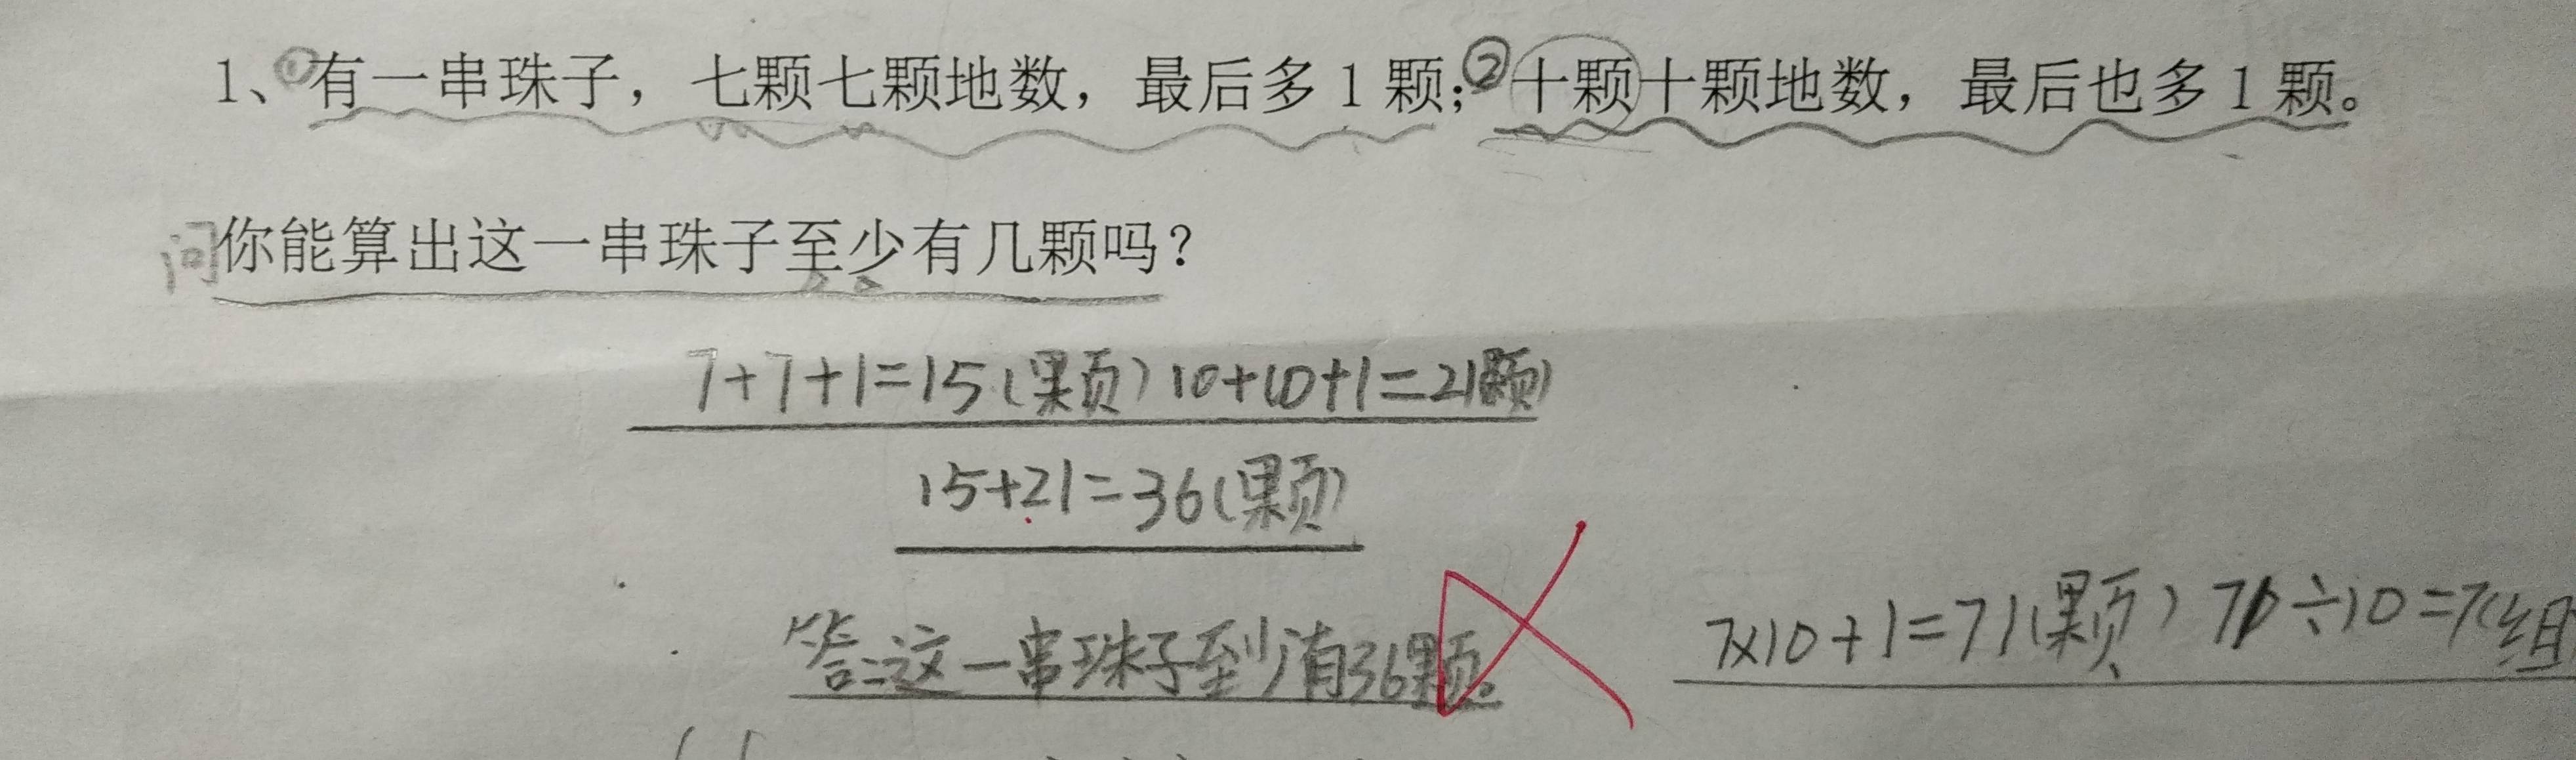 1、①有一串珠子，七颗七颗地数，最后多1颗；②十颗十颗地数，最后也多1颗。
问你能算出这一串珠子至少有几颗吗？
7+7+1=15(颗) 10+10+1=21(颗)
15+21=36(颗)
答:这一串珠子至少有36颗。
7×10+1=71(颗) 70÷10=7(组